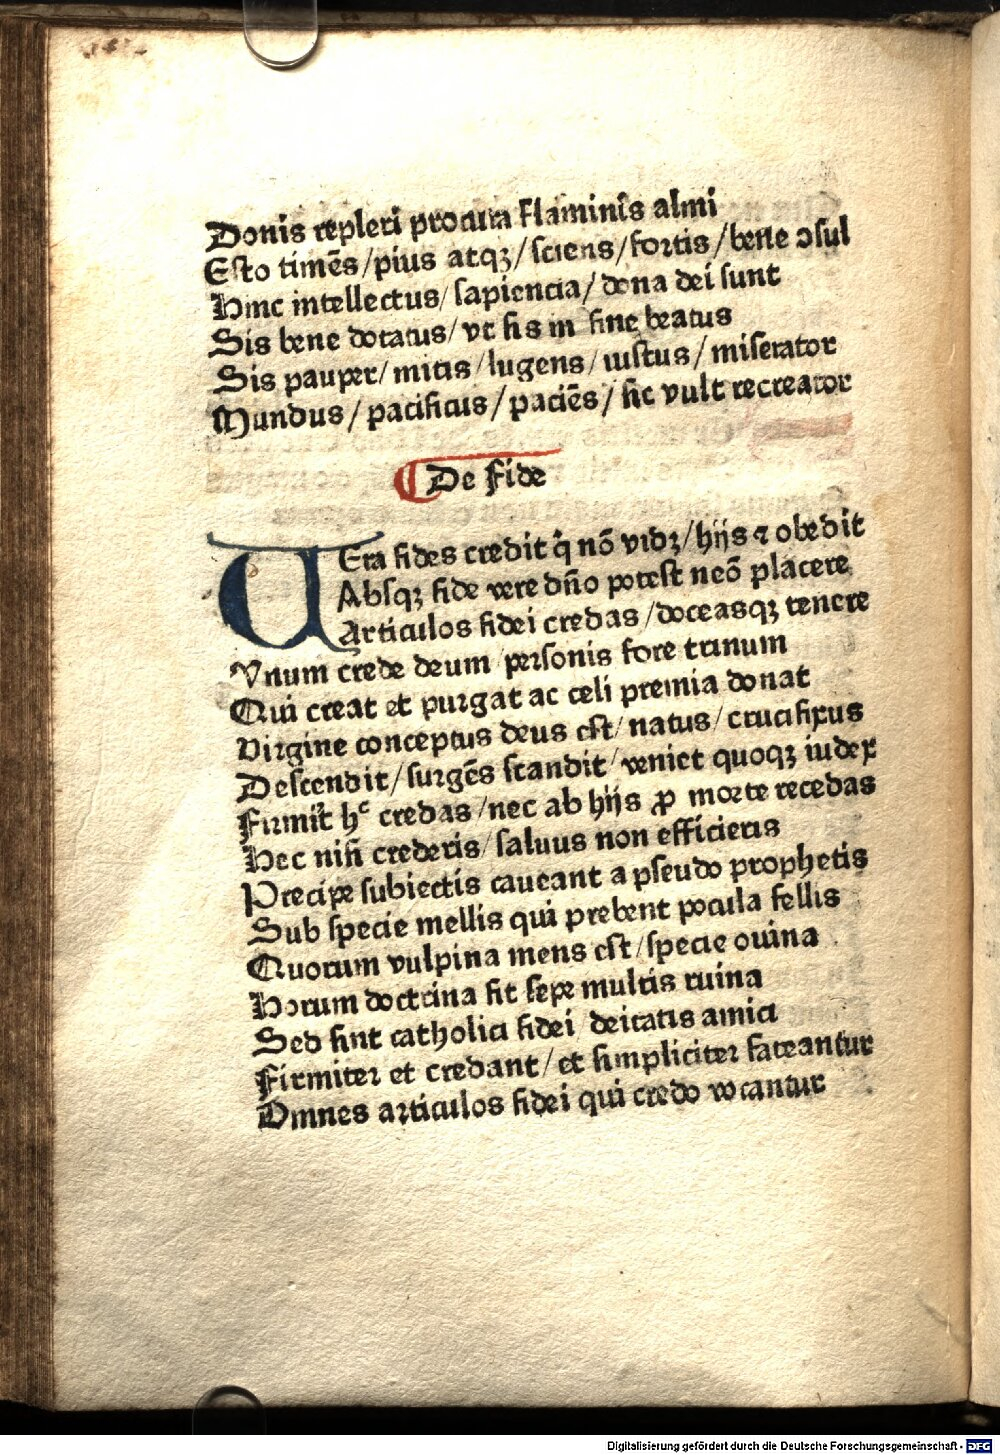 Donis repleri procura Flaminis almi
Esto timēs/pius atqꝫ/sciens/fortis/bene ↄsul
Hinc intellectus/sapiencia/dona dei sunt
Sis bene dotatus/vt sis in fine beatus
Sis pauper/mitis/lugens/iustus/miserator
Mundus/pacificus/paciēs/sic vult recreator
De Fide
VEra fides credit q̄ nō vidꝫ/hijs ⁊ obedit
Absqꝫ fide vere dn̄o potest neō placere
Articulos fidei credas/doceasqꝫ tenere
Vnum crede deum personis fore trinum
Qui creat et purgat ac celi premia donat
Virgine conceptus deus est/natus/crucifixus
Descendit/surgēs scandit/veniet quoqꝫ iudex
Firmit̄ hᶜ credas/nec ab hijs ꝓ morte recedas
Hec nisi crederis/saluus non efficieris
Precipe subiectis caueant a pseudo prophetis
Sub specie mellis qui prebent pocula fellis
Quorum vulpina mens est/specie ouina
Horum doctrina fit sepe multis ruina
Sed sint catholici fidei/deitatis amici
Firmiter et credant/et simpliciter fateantur
Omnes articulos fidei qui credo vocantur
Digitalisierung gefördert durch die Deutsche Forschungsgemeinschaft - DFG